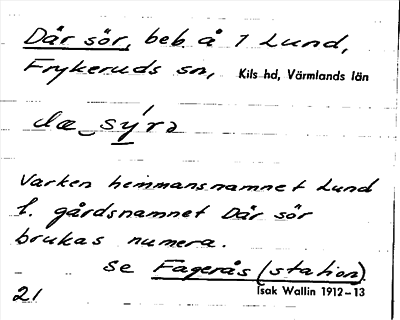 Där sör, beb. å 1 Lund,
Frykeruds sn, Kils hd, Värmlands län
dæ sy̲rə
Varken hemmansnamnet Lund
l. gårdsnamnet Där sör
brukas numera.
Se Fagerås (station)
21 Isak Wallin 1912-13